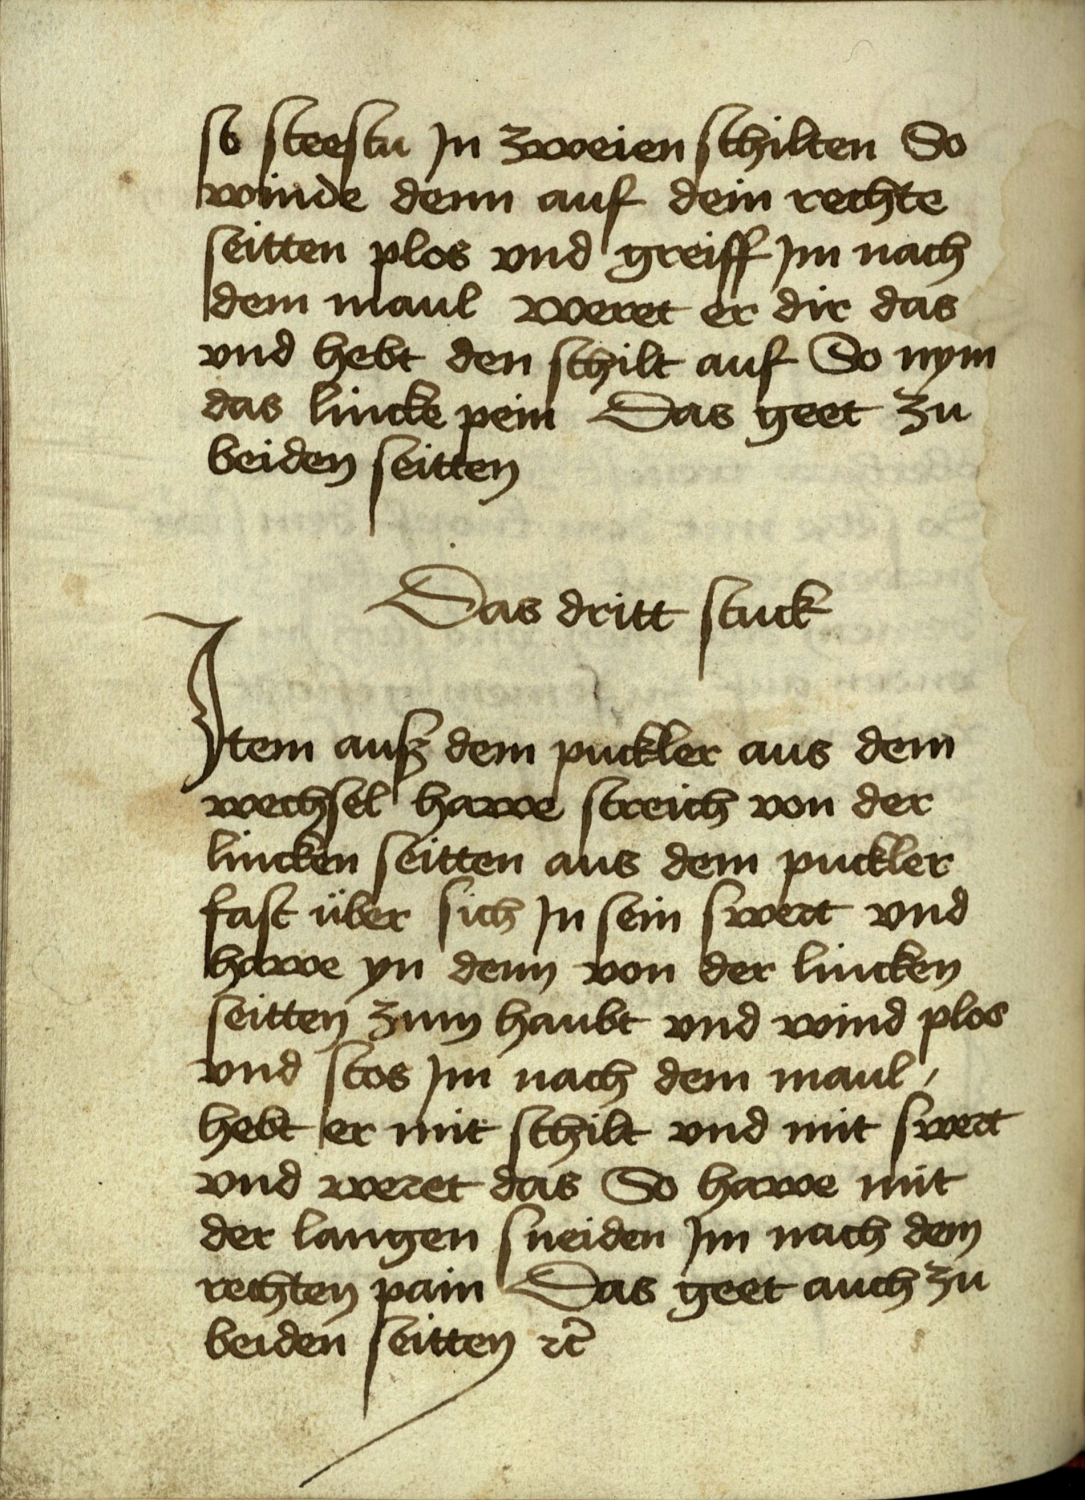 so steestu Jn zweien schilten So
winde denn auf dein rechte
seitten plos vnd greiff Jm nach
dem maul weret er dir das
vnd hebt den schilt auf So nym
das lincke pein Das geet zu
beiden seitten
Das dritt stuck
Jtem auß dem puckler aus dem
wechsel hawe streich von der
lincken seitten aus dem puckler
fast über sich Jn sein swert vnd
hawe yn denn von der lincken
seitten zum haubt vnd wind plos
vnd stos Jm nach dem maul /
hebt er mit schilt vnd mit swert
vnd weret das So hawe mit
der langen sneiden Jm nach dem
rechten pain Das geet auch zu
beiden seitten ꝛc̄